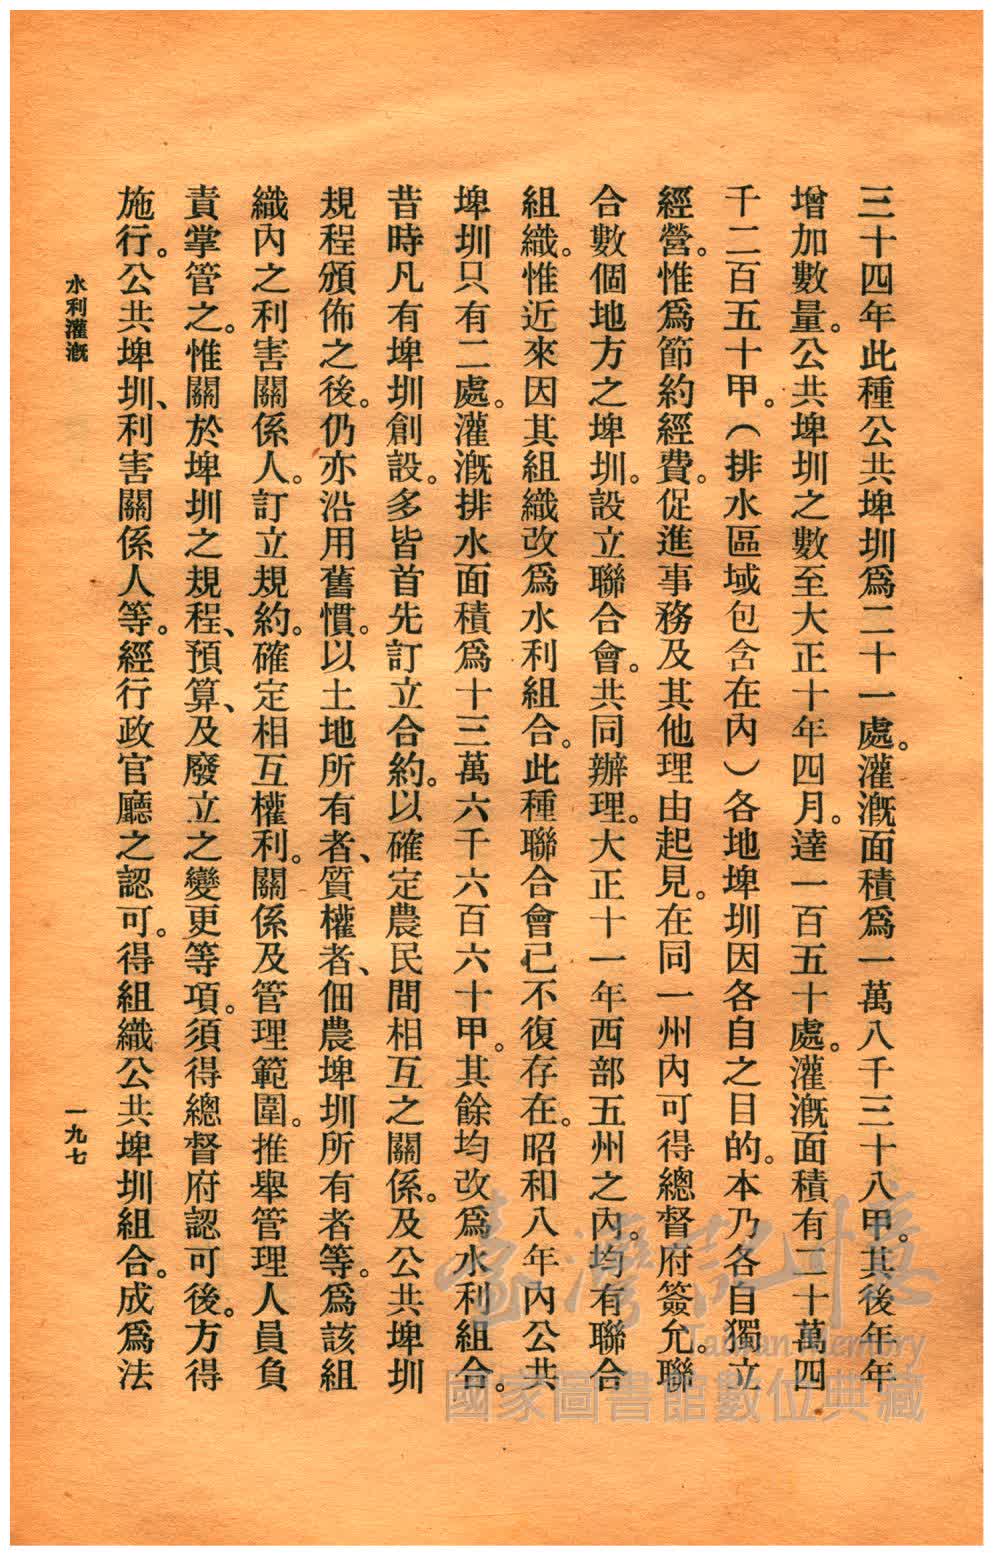 三十四年此種公共埤圳爲二十一處。灌漑面積爲一萬八千三十八甲。其後年年
增加數量。公共埤圳之數至大正十年四月。達一百五十處。灌漑面積有二十萬四
千二百五十甲。（排水區域包含在內）各地埤圳因各自之目的。本乃各自獨立
經營。惟爲節約經費。促進事務及其他理由起見。在同一州內可得總督府簽允。聯
合數個地方之埤圳。設立聯合會。共同辦理。大正十一年西部五州之內。均有聯合
組織。惟近來因其組織改爲水利組合。此種聯合會已不復存在。昭和八年內公共
埤圳只有二處。灌漑排水面積爲十三萬六千六百六十甲。其餘均改爲水利組合。
昔時凡有埤圳創設。多皆首先訂立合約。以確定農民間相互之關係。及公共埤圳
規程頒佈之後。仍亦沿用舊慣。以土地所有者、質權者、佃農埤圳所有者等。爲該組
織內之利害關係人。訂立規約。確定相互權利。關係及管理範圍。推舉管理人員負
責掌管之。惟關於埤圳之規程、預算、及廢立之變更等項。須得總督府認可後。方得
施行。公共埤圳、利害關係人等。經行政官廳之認可。得組織公共埤圳組合。成爲法
水利灌漑
一九七
臺灣記憶
Taiwan Memory
國家圖書館數位典藏